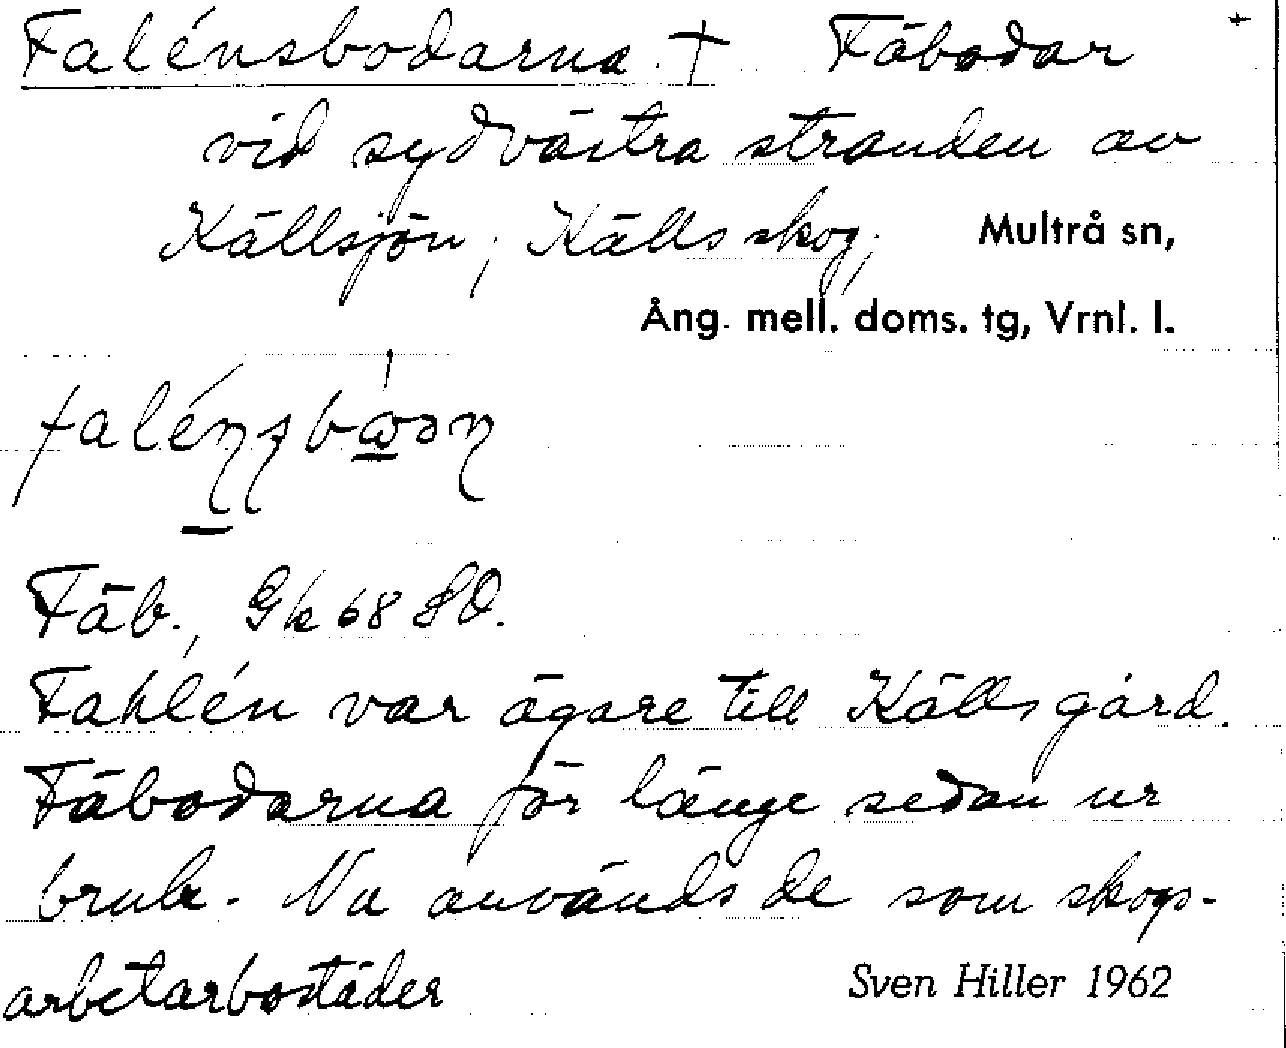 Falénsbodarna † Fäbodar +
vid sydvästra stranden av
Källsjön, Källs skog, Multrå sn,
Ång. mell. doms. tg, Vrnl. l.
Fäb., Gk 68 8D.
Fahlén var ägare till Källsgård.
Fäbodarna för länge sedan ur
bruk. Nu används de som skogs-
arbetarbostäder Sven Hiller 1962